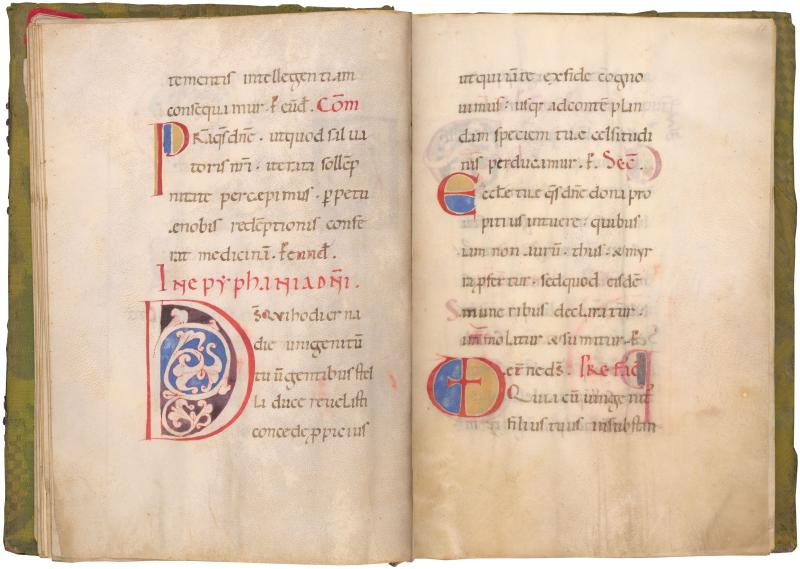 tementis intellegentiam
consequamur. ꝑ eūđ. Cōm
PRᷓ. q̄s dn̄e. ut quod salua
toris nr̄i. iterata sollēp
nitate percepimus. ꝑpetu
ę nobis redēptionis confe
rat medicinā.
In epyphania dn̄i.
Ds̄ qui hodierna
die unigenitū
tuū gentibus stel
la duce reuelasti
concede ꝓpicius
ut qui iā te ex fide cogno
uimus. usq; ad contēplan
dam speciem tuę celsitudi
nis perducamur. ꝑ. Sec̄.
Ecclę tuę q̄s dn̄e dona pro
pitius intuere. quibus
iam non aurū. thus. & myr
ra ꝓfertur. sed quod eisdē
muneribus declaratur.
immolatur & sumitur. ꝑ
Et̄ne ds̄. Prefac̄
Quia cū unigenit᷒
filius tuus in substan